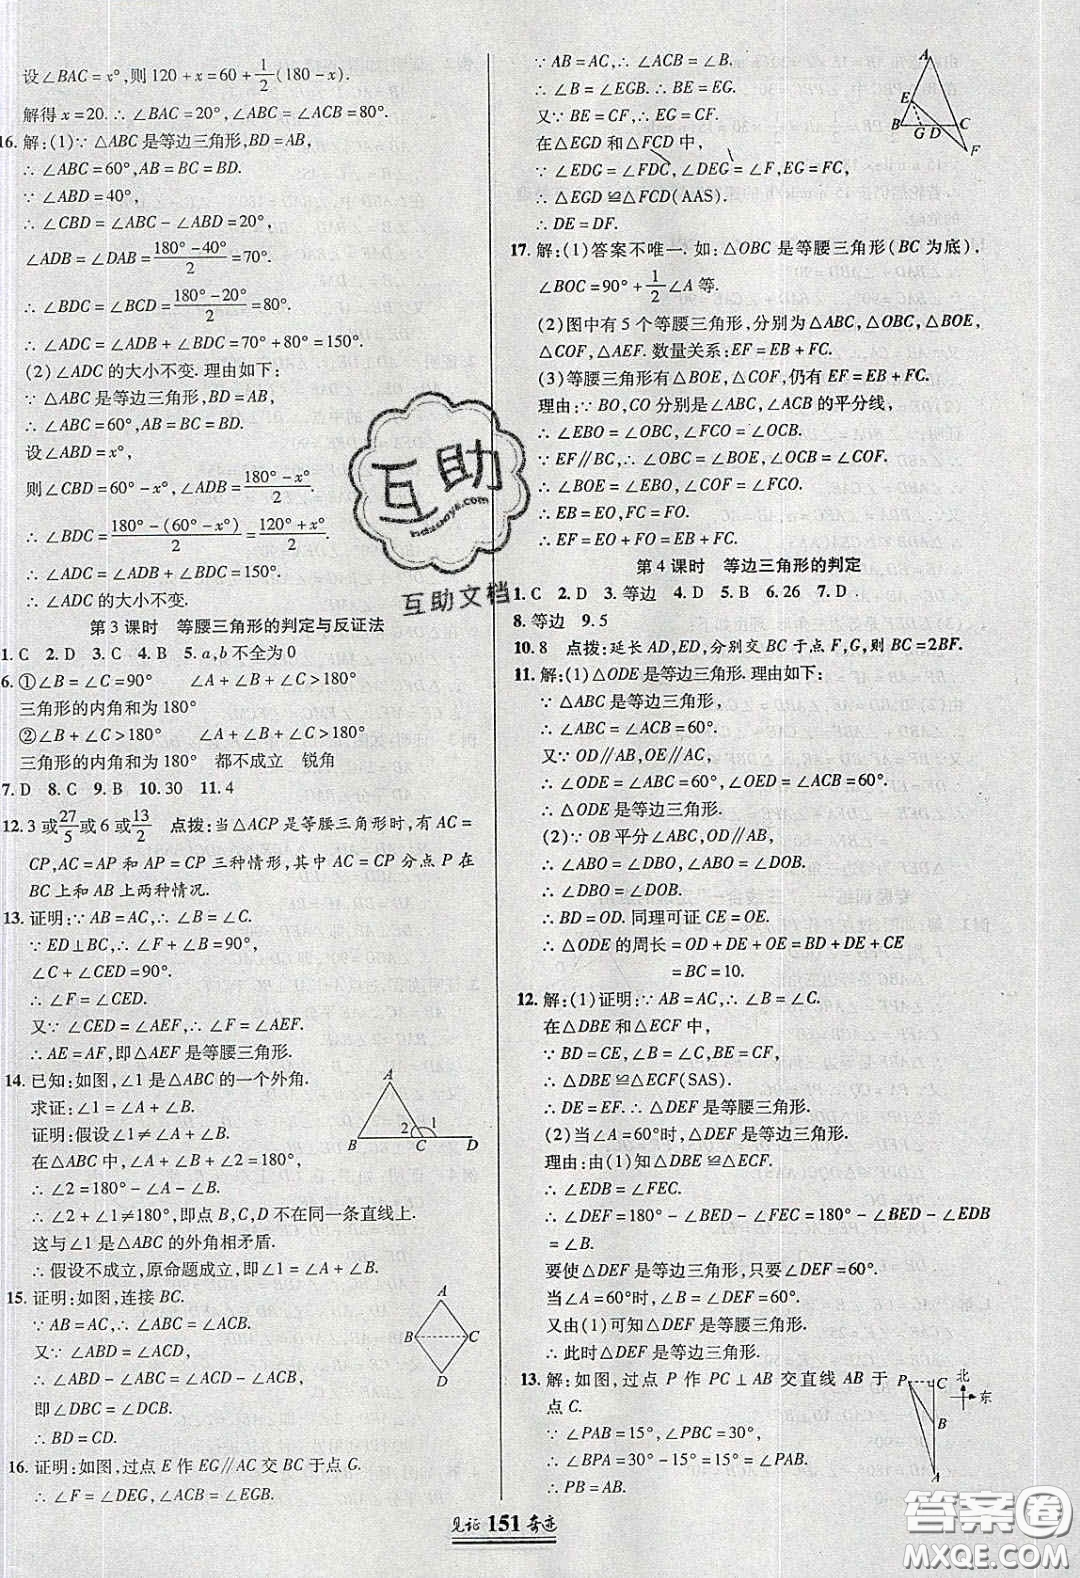 设∠BAC=x°,则120+x=60+1/2(180-x).
解得x=20.∴∠BAC=20°,∠ABC=∠ACB=80°.
16.解:(1)∵△ABC是等边三角形,BD=AB,
∴∠ABC=60°,AB=BC=BD.
∵∠ABD=40°,
∴∠CBD=∠ABC-∠ABD=20°,
∠ADB=∠DAB=(180°-40°)/2=70°.
∴∠BDC=∠BCD=(180°-20°)/2=80°.
∴∠ADC=∠ADB+∠BDC=70°+80°=150°.
(2)∠ADC的大小不变.理由如下:
∵△ABC是等边三角形,BD=AB,
∴∠ABC=60°,AB=BC=BD.
设∠ABD=x°,
则∠CBD=60°-x°,∠ADB=(180°-x°)/2.
∴∠BDC=(180°-(60°-x°))/2=(120°+x°)/2.
∴∠ADC=∠ADB+∠BDC=150°.
∴∠ADC的大小不变.
第3课时 等腰三角形的判定与反证法
1.C 2.D 3.C 4.B 5.a,b不全为0
6.①∠B=∠C=90° ∠A+∠B+∠C>180°
三角形的内角和为180°
②∠B+∠C>180° ∠A+∠B+∠C>180°
三角形的内角和为180° 都不成立 锐角
7.D 8.C 9.B 10.30 11.4
12.3或27/5或6或13/2 点拨:当△ACP是等腰三角形时,有AC=
CP,AC=AP和AP=CP三种情形,其中AC=CP分点P在
BC上和AB上两种情况.
13.证明:∵AB=AC,∴∠B=∠C.
∵ED⊥BC,∴∠F+∠B=90°,
∠C+∠CED=90°.
∴∠F=∠CED.
又∵∠CED=∠AEF,∴∠F=∠AEF.
∴AE=AF,即△AEF是等腰三角形.
14.已知:如图,∠1是△ABC的一个外角.
求证:∠1=∠A+∠B.
证明:假设∠1≠∠A+∠B.
在△ABC中,∠A+∠B+∠2=180°,
∴∠2=180°-∠A-∠B.
∴∠2+∠1≠180°,即点B,C,D不在同一条直线上.
这与∠1是△ABC的外角相矛盾.
∴假设不成立,原命题成立,即∠1=∠A+∠B.
A
2 1
B C D
15.证明:如图,连接BC.
∵AB=AC,∴∠ABC=∠ACB.
又∵∠ABD=∠ACD,
∴∠ABD-∠ABC=∠ACD-∠ACB,
即∠DBC=∠DCB.
∴BD=CD.
A
B C
D
16.证明:如图,过点E作EG∥AC交BC于点G.
∴∠F=∠DEG,∠ACB=∠EGB.
∵AB=AC,∴∠ACB=∠B.
∴∠B=∠EGB.∴BE=EG.
又∵BE=CF,∴EG=CF.
在△EGD和△FCD中,
∵∠EDG=∠FDC,∠DEG=∠F,EG=FC,
∴△EGD≌△FCD(AAS).
∴DE=DF.
A
E
B G D C
F
17.解:(1)答案不唯一.如:△OBC是等腰三角形(BC为底),
∠BOC=90°+1/2∠A等.
(2)图中有5个等腰三角形,分别为△ABC,△OBC,△BOE,
△COF,△AEF.数量关系:EF=EB+FC.
(3)等腰三角形有△BOE,△COF,仍有EF=EB+FC.
理由:∵BO,CO分别是∠ABC,∠ACB的平分线,
∴∠EBO=∠OBC,∠FCO=∠OCB.
∵EF∥BC,∴∠EOB=∠OBC,∠FOC=∠OCB.
∴∠BOE=∠EBO,∠COF=∠FCO.
∴EB=EO,FC=FO.
∴EF=EO+FO=EB+FC.
第4课时 等边三角形的判定
1.C 2.D 3.等边 4.D 5.B 6.26 7.D
8.等边 9.5
10.8 点拨:延长AD,ED,分别交BC于点F,G,则BC=2BF.
11.解:(1)△ODE是等边三角形.理由如下:
∵△ABC是等边三角形,
∴∠ABC=∠ACB=60°.
又∵OD∥AB,OE∥AC,
∴∠ODE=∠ABC=60°,∠OED=∠ACB=60°.
∴△ODE是等边三角形.
(2)∵OB平分∠ABC,OD∥AB,
∴∠ABO=∠DBO,∠ABO=∠DOB.
∴∠DBO=∠DOB.
∴BD=OD.同理可证CE=OE.
∴△ODE的周长=OD+DE+OE=BD+DE+CE
=BC=10.
12.解:(1)证明:∵AB=AC,∴∠B=∠C.
在△DBE和△ECF中,
∵BD=CE,∠B=∠C,BE=CF,
∴△DBE≌△ECF(SAS).
∴DE=EF.∴△DEF是等腰三角形.
(2)当∠A=60°时,△DEF是等边三角形.
理由:由(1)知△DBE≌△ECF,
∴∠EDB=∠FEC.
∴∠DEF=180°-∠BED-∠FEC=180°-∠BED-∠EDB
=∠B.
要使△DEF是等边三角形,只要∠DEF=60°.
当∠A=60°时,∠B=∠DEF=60°.
又由(1)可知△DEF是等腰三角形.
∴此时△DEF是等边三角形.
13.解:如图,过点P作PC⊥AB交直线AB于
点C.
∵∠PAB=15°,∠PBC=30°,
∴∠BPA=30°-15°=15°=∠PAB.
∴PB=AB.
P C 北
东
B
A
互助
hdzuoye.com
互助文档
见证 151 奇迹
答案圈
MXQE.COM